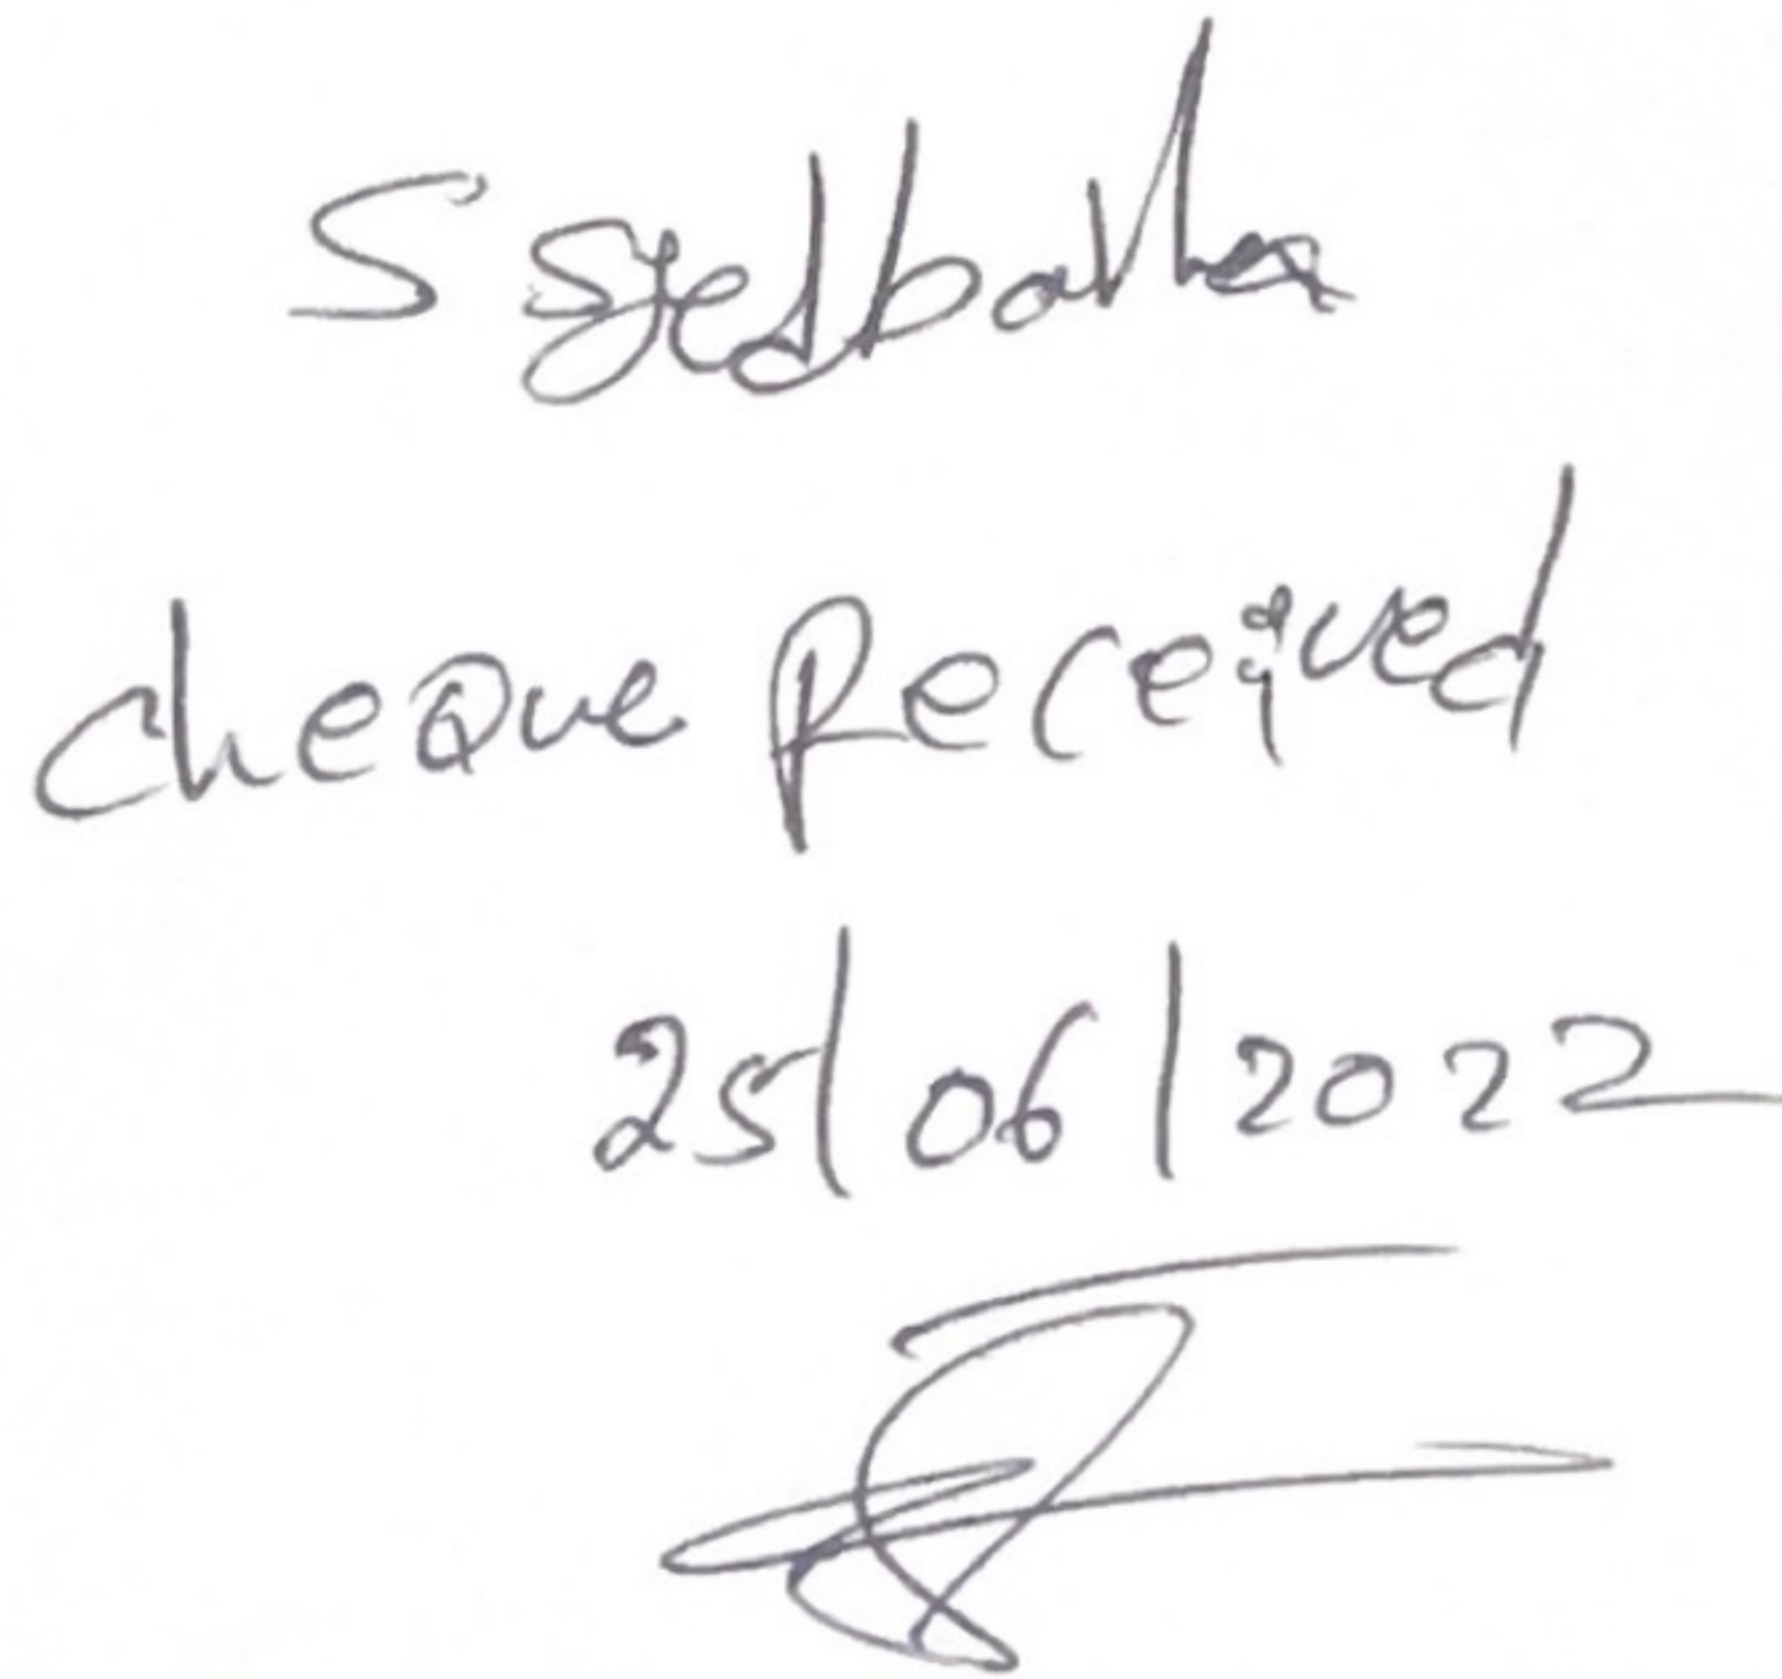 S Syedbavha
cheque Received
25/06/2022